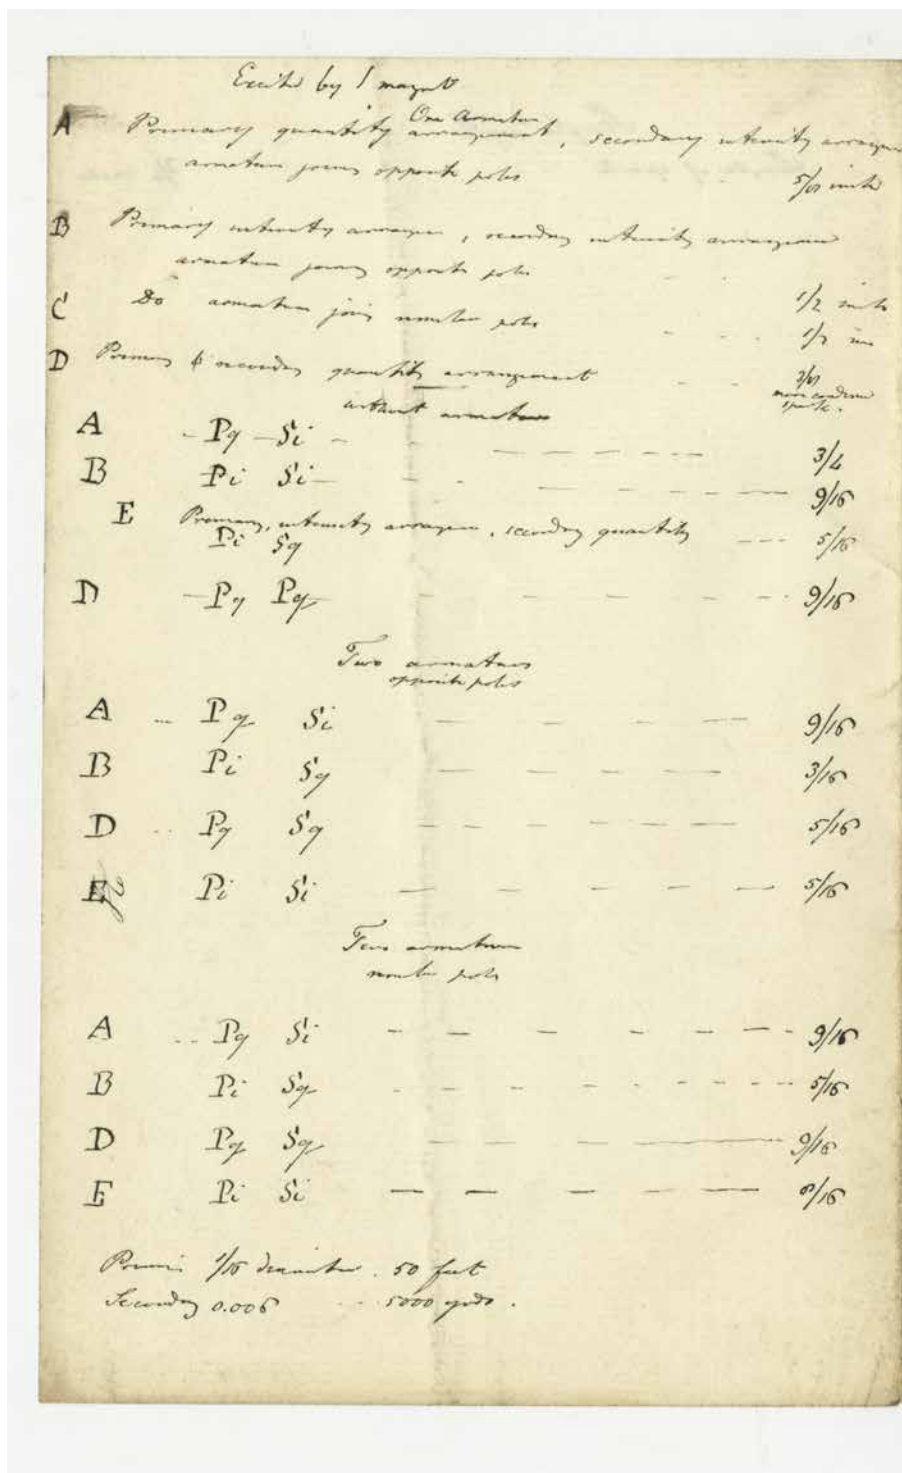 Excited by 1 magnet
One Armature
A Primary quantity arrangement, secondary intensity arrangem
armature joins opposite poles 5/8 inch
B Primary intensity arrangem, secondary intensity arrangem
armature joins opposite poles 1/2 inch
C Do armature joins similar poles
D Primary & secondary quantity arrangement
more condensed
spark.
without armature
A Pq Si 3/4
B Pi Si 9/16
E Primary, intensity arrangem, secondary quantity
Pi Sq 5/16
D Pq Pq 9/16
Two armatures
opposite poles
A Pq Si 9/16
B Pi Sq 3/16
D Pq Sq 5/16
E Pi Si 5/16
Two armatures
similar poles
A Pq Si 9/16
B Pi Sq 5/16
D Pq Sq 9/16
E Pi Si /16
1/16 diameter. 50 feet
Secondary 0.006 5000 yards.